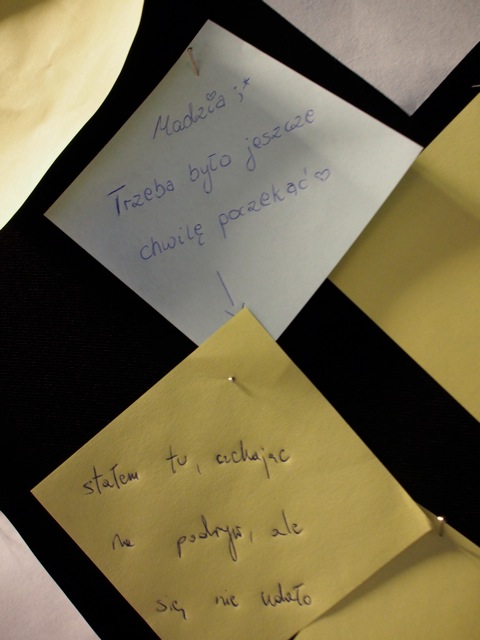 Madzia ;*
Trzeba było jeszcze
chwilę poczekać ♡
stałem tu, czekając
na podryw, ale
się nie udało